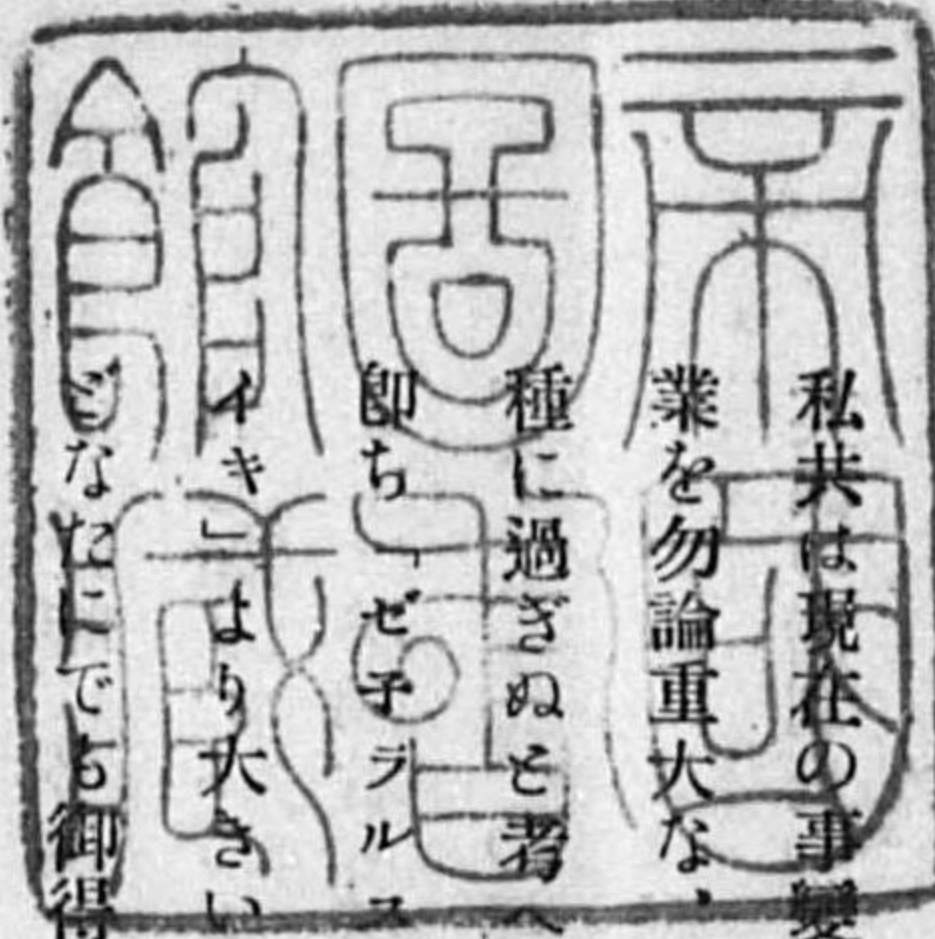 私共は現在の事變
業を勿論重大な、
種に過ぎぬと考へ
卽ち「ゼ子ラルス
イキ」より大きい
どなたにでも御得
帝國
圖書
館藏